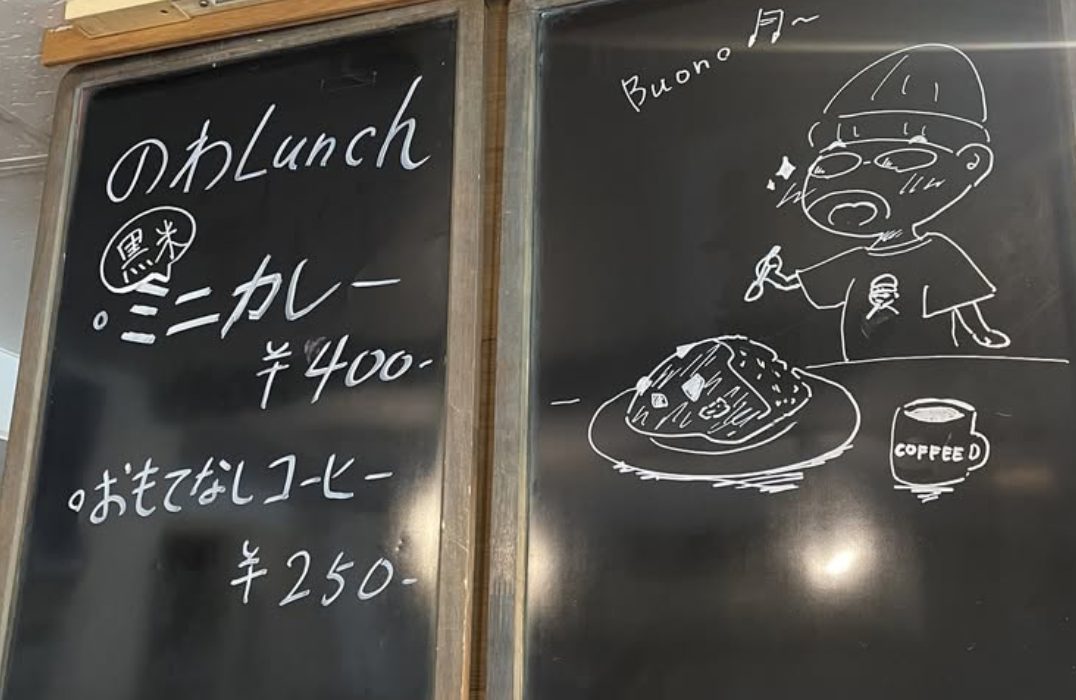 のわLunch
黒米
・ミニカレー
¥400-
・おもてなしコーヒー
¥250-
Buono ♫〜
COFFEE